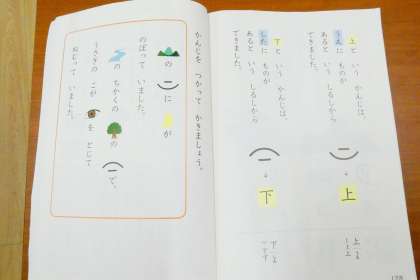 上と いう かんじは、
うえに ものが
あると いう しるしから
できました。
上
下と いう かんじは、
したに ものが
あると いう しるしから
できました。
下
かんじを つかって かきましょう。
の に が
のぼって いました。
の ちかくの の で、
うさぎの こが を とじて
ねむって いました。